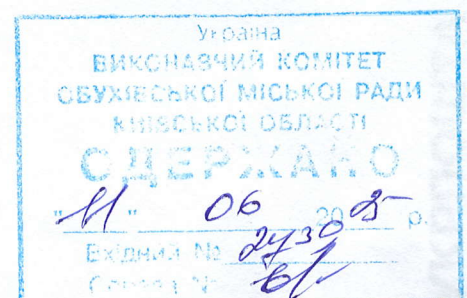 Україна
ВИКОНАВЧИЙ КОМІТЕТ
ОБУХІВСЬКОЇ МІСЬКОЇ РАДИ
КИЇВСЬКОЇ ОБЛАСТІ
ОДЕРЖАНО
"11" 06 2025 р.
Вхідний № 2430